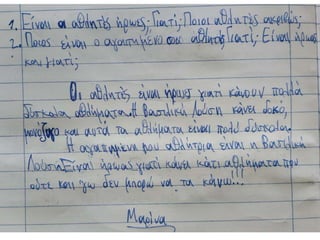 1. Είναι οι αθλητές ήρωες; Γιατί; Ποιοι αθλητές ακριβώς;
2. Ποιος είναι ο αγαπημένο σου αθλητής Γιατί; Είναι ήρωας
και γιατί;
Οι αθλητές είναι ήρωες γιατί κάνουν πολλά
δύσκολα αθλήματα. Η Βασιλική Λούση κάνει δοκό,
μονόζυγο και αυτά τα αθλήματα είναι πολύ δύσκολα.
Η αγαπημένη μου αθλήτρια είναι η Βασιλική
Λούση. Είναι ήρωας γιατί κάνει κάτι αθλήματα που
ούτε και γω δεν μπορώ να τα κάνω!!!
Μαρίνα